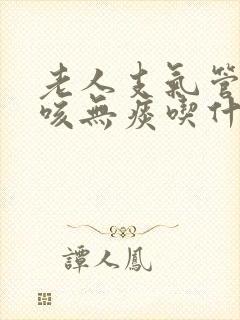 老人支氣管
咳無痰喫什
譚人鳳